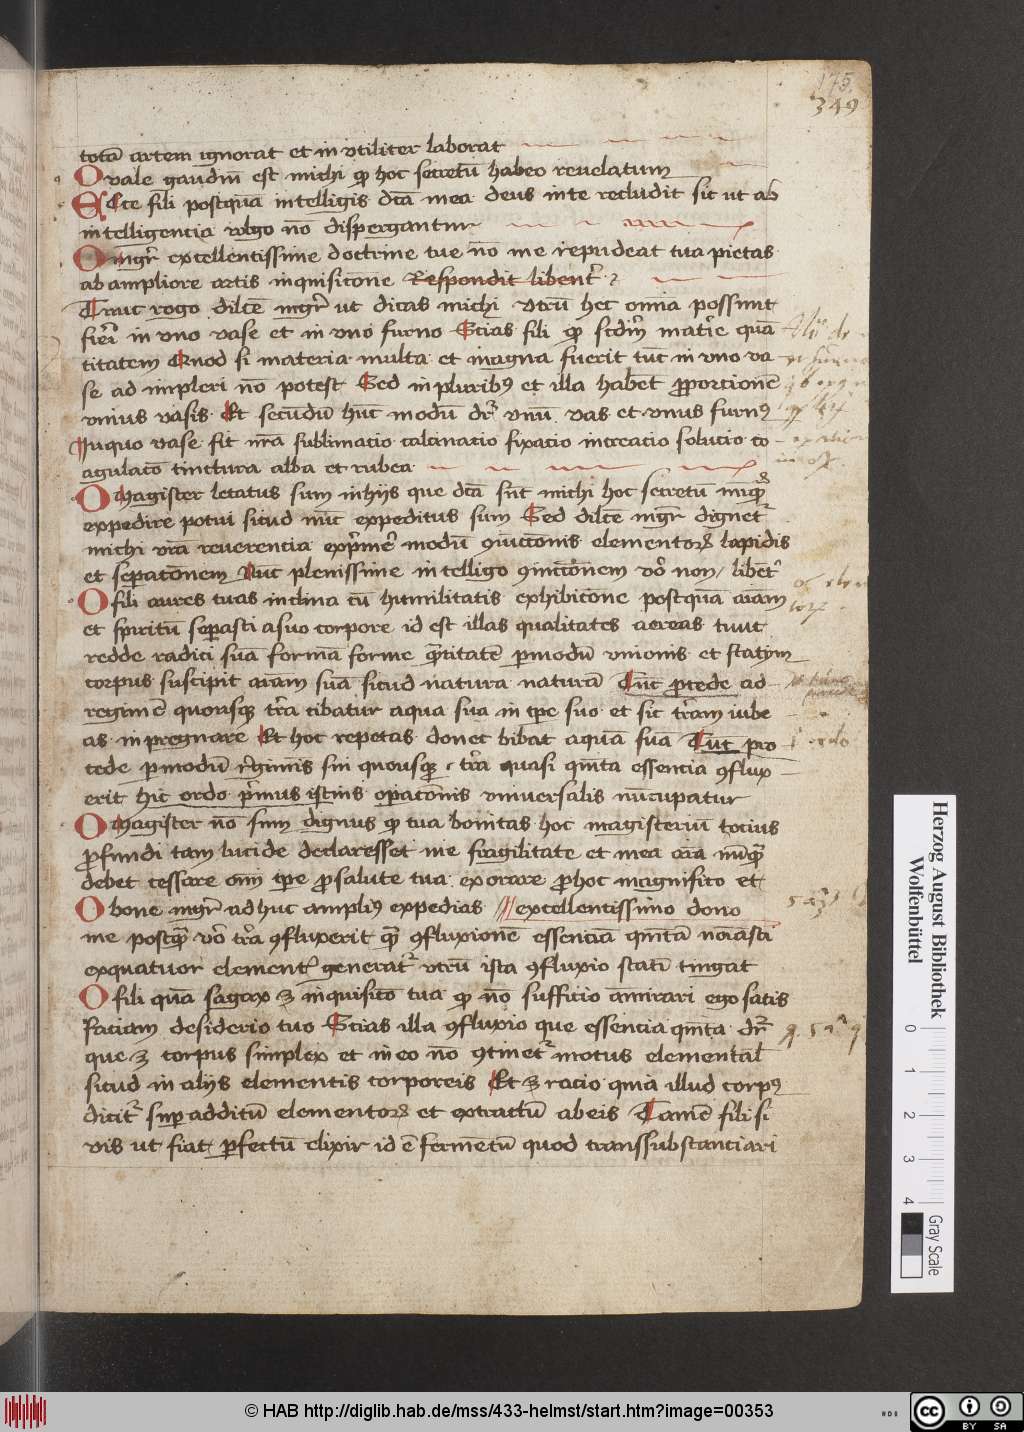 175
349
totā artem ignorat et in vtiliter laborat
O vale gaudiū est michi qp hoc secretū habeo reuelatum
Ecce fili postquā intelligis dcā mea deus in te recludit sic ut ab
intelligencia volgo nō dispergantur
O mgr̄ excellentissime doctrine tue nō me repudeat tua pietas
ab ampliore artis inquisicōne Respondit libent͛
Tunc rogo dilcē mgr̄ ut dicas michi vtrū hec omnia possunt
fieri in vno vase et in vno furno Scias fili qp scdm̄ mat͛ie quā
titatem Quod si materia multa et magna fuerit tūc in vno va
se ad impleri nō potest Sed in pluribꝯ et illa habēt ꝓporcionē
vnius vasis Et secundū hūc modū dr̄ vnū vas et vnus furnꝯ
In quo vase fit nr̄a sublimacio calcinacio fixacio increacio solucio co
agulacō tinctura alba et rubea
O magister letatus sum in hijs que dcā sūt michi hoc secretū nūqꝫ
expedire potui sicud nūc expeditus sum Sed dilcē mgr̄ dignet͛
michi vr̄a reuerencia exp͛me͛ modū ꝯiūccōnis elementoꝝ lapidis
et sepacōnem Nūc plenissime intelligo ꝯiunctōnem vo͛ non libēt͛
O fili aures tuas inclina cū humilitatis exhibicōne postquā aīam
et spiritū sepasti a suo corpore id est illas qualitates aereas tūc
redde radici suā formā forme q͛ntitatē ꝑ modū vnionis et statim
corpus suscipit aīam suā sicud natura naturā Tūc ꝓcede ad
regimē quousqꝫ tr̄a cibatur aqua sua in tꝑe suo et sic tr̄am iube
as inpregnare Et hoc repetas donec bibat aquā sua Tūc pro
cede ꝑ modū r͛giminis sui quousqꝫ tr̄a quasi qīnta essencia ꝯflux
erit hic ordo p͛mus istius opacōnis vniuersalis nūcupatur
O magister nō sum dignus qp tua bonitas hoc magisteriū tocius
ꝓfundi tam lucide declaresset me fragilitate et mea aīa nūqꝫ
debet cessare omi tꝑe ꝓ salute tua exorare ꝓ hoc magnifico et
O bone mgr̄ adhuc ampliꝯ expedias excellentissimo dono
me postqꝫ vo͛ tr̄a ꝯfluxerit qꝫ ꝯfluxionē essenciā qīntā noīasti
ex quatuor element͛ generat͛ vtrū ista ꝯfluxio stati tingat
O fili quā sagax ꝫ inquisicō tua qp nō sufficio ammirari ego satis
faciam desiderio tuo Scias illa ꝯfluxio que essencia qīnta dr̄
que ꝫ corpus simplex et in eo nō ꝯtinet͛ motus elementāl
sicud in alijs elementis corporeis Et ꝫ racio quia illud corpꝯ
dicit͛ suꝑ additū elementoꝝ et extractū ab eis Tamē fili si
vis ut fiat ꝑfectū elixir id ē fermētū quod transsubstanciari
Herzog August Bibliothek
Wolfenbüttel
0 1 2 3 4
Gray Scale
© HAB http://diglib.hab.de/mss/433-helmst/start.htm?image=00353
cc BY SA